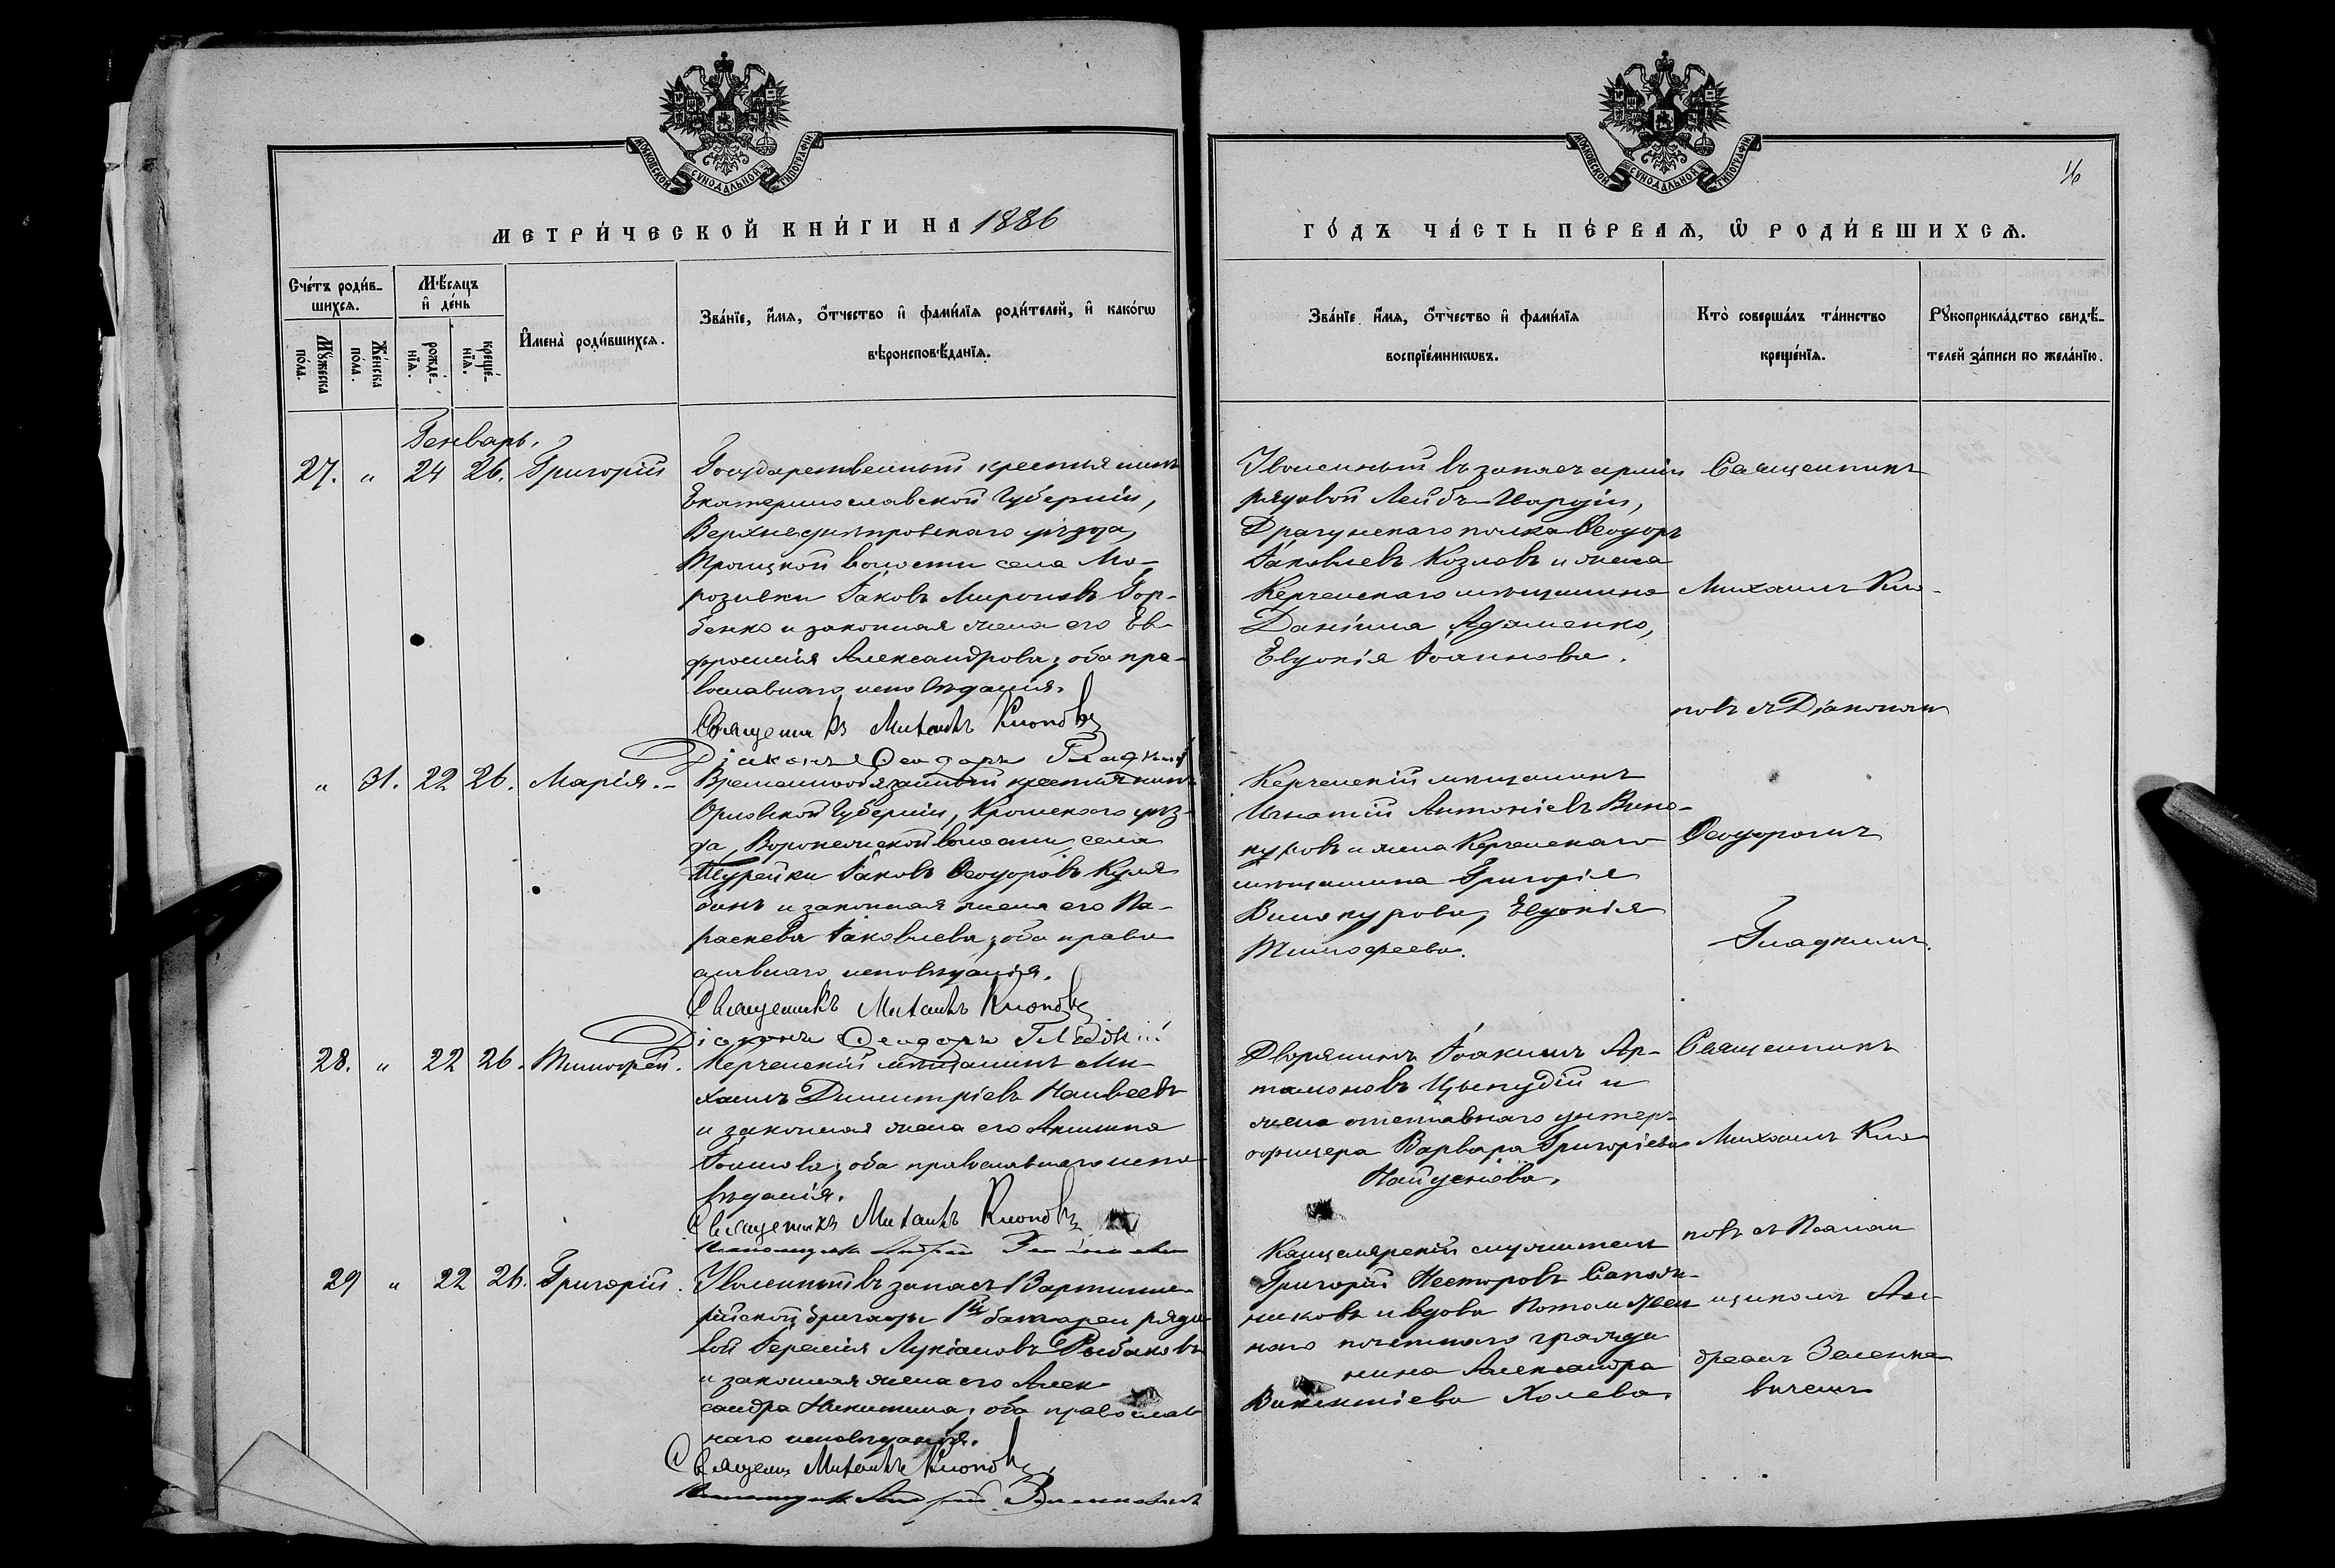 МОСКОВСКОЙ СУНОДАЛЬНОЙ ТИПОГРАФІИ
МЕТРИ́ЧЕСКОЙ КНИ́ГИ НА 1886
Счéтъ роди́в-
шихся.
Мѣ́сяцъ
и҆ де́нь
Мꙋ́жеска
по́ла.
Же́нска
по́ла.
рожде́-
нїѧ.
креще́-
нїѧ.
И҆мена̀ роди́вшихсѧ.
Зва́нїе, и҆́мѧ, ѻ҆́тчество и҆ фами́лїѧ роди́телей, и҆ како́гѡ
вѣроисповѣ́данїѧ.
Генварь.
27. " 24 26. Григорій
Государственный крестьянинъ
Екатеринославской Губерніи,
Верхнеднѣпровскаго уѣзда,
Троицкой волости села Мо-
розовки Іаковъ Мироновъ Гор-
бенко и законная жена его Ев-
фросинія Александрова; оба пра-
вославнаго исповѣданія.
Священникъ Михаилъ Клоповъ
Діаконъ Ѳеодоръ Гладкій
" 31. 22 26. Марія.
Временнообязанный крестьянинъ
Орловской Губерніи, Кромскаго уѣз-
да, волости села
Іаковъ Ѳеодоровъ
и законная жена его Па-
раскева Іаковлева; оба право
славнаго исповѣданія.
Священникъ Михаилъ Клоповъ
Діаконъ Ѳеодоръ Гладкій
28. " 22 26. Тимофей.
Керченскій мѣщанинъ Ми-
хаилъ Димитріевъ
и законная жена его
оба православнаго испо
вѣданія.
Священникъ Михаилъ Клоповъ
Псаломщикъ Андрей
29 " 22 26. Григорій.
Уволенный въ запасъ
бригады 1й батареи рядо
вой Іеремія Лукіановъ Рыбаковъ
и законная жена его Алек-
сандра Никитина; оба православ
наго исповѣданія.
Священ Михаилъ Клоповъ
Псаломщикъ Андрей
МОСКОВСКОЙ СУНОДАЛЬНОЙ ТИПОГРАФІИ
ГО́ДЪ ЧА́СТЬ ПЕ́РВАѦ, Ѡ҆ РОДИ́ВШИХСѦ.
Зва́нїе и҆́мѧ, ѻ҆́тчество и҆ фами́лїѧ
воспрїе́мникѡвъ.
Кто̀ соверша́лъ та́инство
креще́нїѧ.
Рꙋкоприкла́дство свидѣ́-
телей за́писи по жела́нїю.
Уволенный въ запасъ арміи
рядовой Лейбъ-Гвардіи,
Драгунскаго полка Ѳеодоръ
Іаковлевъ Козловъ и жена
Керченскаго мѣщанина
Даніила Адаменко,
Евдокія Іоаннова.
Священникъ
Михаилъ Кло-
повъ съ Діакономъ
Ѳеодоромъ
Гладкимъ.
Керченскій мѣщанинъ
Игнатій Антоніевъ Вино-
куровъ и жена Керченскаго
мѣщанина Григорія
Винокурова, Евдокія
Тимофеева.
Дворянинъ Іоакимъ Ар-
тамоновъ и
жена отставнаго унтеръ-
офицера Варвара Григоріева
Священникъ
Михаилъ Кло-
повъ съ Псалом
щикомъ Ан-
дреемъ Зеленке-
вичемъ
Канцелярскій служитель
Григорій Несторовъ Сапож-
никовъ и вдова Потомствен
наго почетнаго гражда
нина Александра
Викентіева Холева.